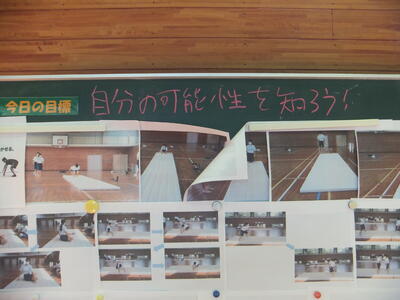 今日の目標
自分の可能性を知ろう!!
かせる。